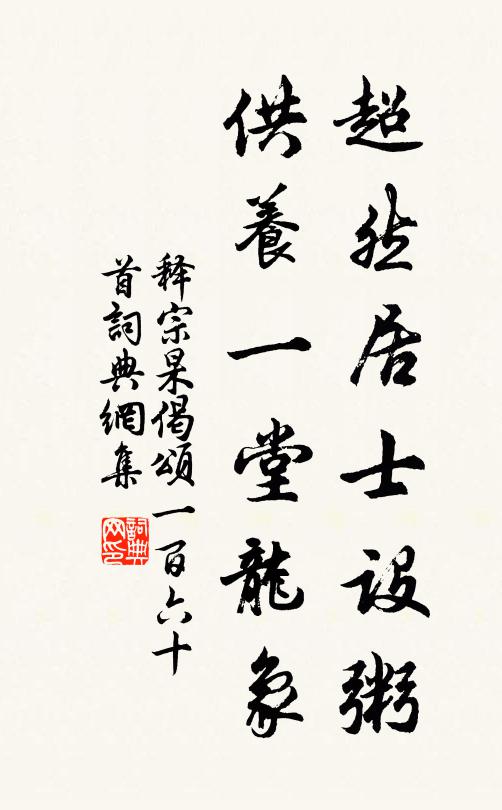 超然居士設粥
供養一堂龍象
释宗杲偈頌一百六十
首詞典網集
詞典
网印